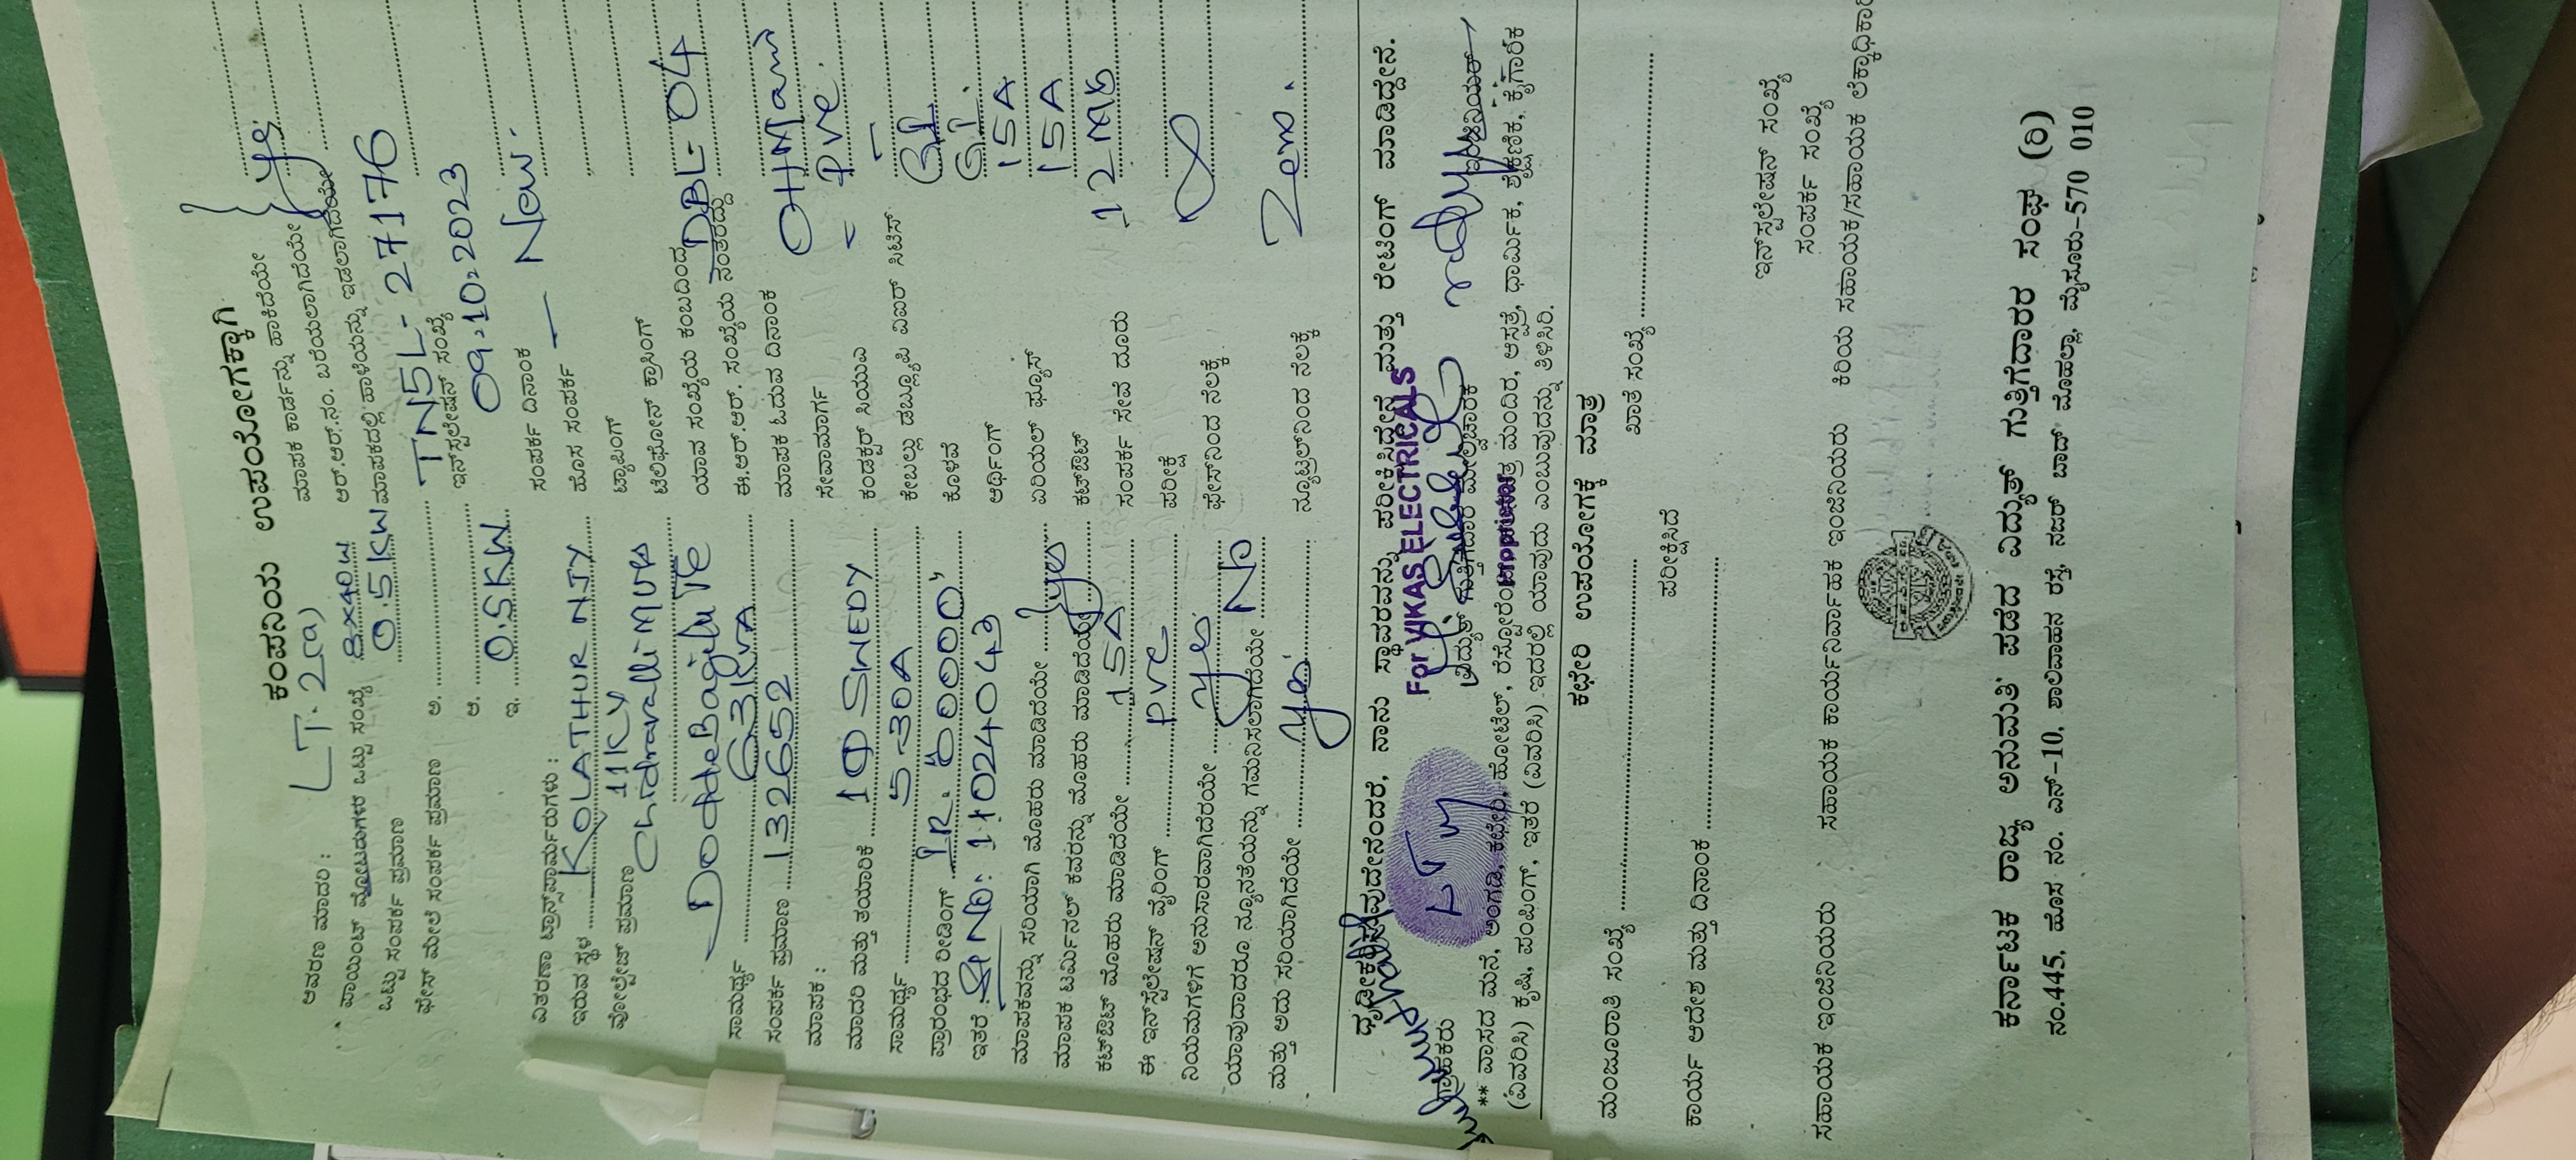 ಕಂಪನಿಯ ಉಪಯೋಗಕ್ಕಾಗಿ
ಆವರಣ ಮಾದರಿ : LT. 2(a)
ಮಾಪಕ ಕಾರ್ಡನ್ನು ಹಾಕಿದೆಯೇ
ಪಾಯಿಂಟ್ ಒಟ್ಟು ಸಂಖ್ಯೆ 8x40W
ಆರ್.ಆರ್.ನಂ. ಬರೆಯಲಾಗಿದೆಯೇ } Yes
ಒಟ್ಟು ಸಂಪರ್ಕ ಪ್ರಮಾಣ 0.5KW
ಮಾಪಕದಲ್ಲಿ ಹಾಳೆಯನ್ನು ಇಡಲಾಗಿದೆಯೇ
ಫೇಸ್ ಮೇಲೆ ಸಂಪರ್ಕ ಪ್ರಮಾಣ ಅ.
TN5L- 27176
ಆ.
ಇನ್‌ಸ್ಟಲೇಷನ್ ಸಂಖ್ಯೆ
ಇ. 0.5KW
09.10.2023
ಸಂಪರ್ಕ ದಿನಾಂಕ
ವಿತರಣಾ ಟ್ರಾನ್ಸ್‌ಫಾರ್ಮರುಗಳು :
ಹೊಸ ಸಂಪರ್ಕ — New.
ಇರುವ ಸ್ಥಳ KOLATHUR NJY
ಟ್ಯಾಪಿಂಗ್
ವೋಲ್ಟೇಜ್ ಪ್ರಮಾಣ 11KV
ಟೆಲಿಫೋನ್ ಕ್ರಾಸಿಂಗ್
ಯಾವ ಸಂಖ್ಯೆಯ ಕಂಬದಿಂದ DBL- 04
ಸಾಮರ್ಥ್ಯ 63KVA
ಈ.ಆರ್.ಆರ್. ಸಂಖ್ಯೆಯ ನಂತರದ್ದು
ಸಂಪರ್ಕ ಪ್ರಮಾಣ 132652
ಮಾಪಕ ಓದುವ ದಿನಾಂಕ
ಮಾಪಕ :
ಸೇವಾಮಾರ್ಗ PVC.
ಮಾದರಿ ಮತ್ತು ತಯಾರಿಕೆ
ಕಂಡಕ್ಟರ್ ಸಿಯುವಿ
ಸಾಮರ್ಥ್ಯ 5-30A
ಕೇಬಲ್ಲು ಡಬ್ಲ್ಯೂಪಿ ವಿಐರ್ ಸಿಟಿಸ್ GI
ಪ್ರಾರಂಭದ ರೀಡಿಂಗ್ IR. 00000
ಕೊಳವೆ GI.
ಇತರೆ Sl No: 11024043
ಅರ್ಥಿಂಗ್ 15A
ಮಾಪಕವನ್ನು ಸರಿಯಾಗಿ ಮೊಹರು ಮಾಡಿದೆಯೇ
ಏರಿಯಲ್ ಫ್ಯೂಸ್ 15A
ಮಾಪಕ ಟರ್ಮಿನಲ್ ಕವರನ್ನು ಮೊಹರು ಮಾಡಿದೆಯೇ } Yes
ಕಟ್‌ಔಟ್ 12Mts
ಕಟ್‌ಔಟ್ ಮೊಹರು ಮಾಡಿದೆಯೇ 15A
ಸಂಪರ್ಕ ಸೇವೆ ದೂರು
ಈ ಇನ್‌ಸ್ಟಲೇಷನ್ ವೈರಿಂಗ್ PVC
ಪರೀಕ್ಷೆ
ನಿಯಮಗಳಿಗೆ ಅನುಸಾರವಾಗಿದೆಯೇ Yes
ಫೇಸ್‌ನಿಂದ ನೆಲಕ್ಕೆ ∞
ಯಾವುದಾದರೂ ನ್ಯೂನತೆಯನ್ನು ಗಮನಿಸಲಾಗಿದೆಯೇ No
ಮತ್ತು ಅದು ಸರಿಯಾಗಿದೆಯೇ Yes
ನ್ಯೂಟ್ರಲ್‌ನಿಂದ ನೆಲಕ್ಕೆ Zero.
ಧೃಡೀಕರಿಸುವುದೇನೆಂದರೆ, ನಾನು ಸ್ಥಾವರವನ್ನು ಪರೀಕ್ಷಿಸಿದ್ದೇನೆ ಮತ್ತು ರೇಟಿಂಗ್ ಮಾಡಿದ್ದೇನೆ.
For VIKAS ELECTRICALS
LTM
ಗ್ರಾಹಕರು ವಿದ್ಯುತ್ ಗುತ್ತಿಗೆದಾರ ಮೇಲ್ವಿಚಾರಕ ಇಂಜಿನಿಯರ್
Proprietor
** ವಾಸದ ಮನೆ, ಅಂಗಡಿ, ಕಛೇರಿ, ಹೋಟೆಲ್, ರೆಸ್ಟೋರೆಂಟ್, ಮಂದಿರ, ಆಸ್ಪತ್ರೆ, ಧಾರ್ಮಿಕ, ಶೈಕ್ಷಣಿಕ, ಕೈಗಾರಿಕೆ
(ವಿವರಿಸಿ) ಕೃಷಿ, ಪಂಪಿಂಗ್, ಇತರೆ (ವಿವರಿಸಿ) ಇದರಲ್ಲಿ ಯಾವುದು ಎಂಬುವುದನ್ನು ತಿಳಿಸಿರಿ.
ಕಛೇರಿ ಉಪಯೋಗಕ್ಕೆ ಮಾತ್ರ
ಮಂಜೂರಾತಿ ಸಂಖ್ಯೆ
ಖಾತೆ ಸಂಖ್ಯೆ
ಪರೀಕ್ಷಿಸಿದೆ
ಕಾರ್ಯ ಆದೇಶ ಮತ್ತು ದಿನಾಂಕ
ಇನ್‌ಸ್ಟಲೇಷನ್ ಸಂಖ್ಯೆ
ಸಂಪರ್ಕ ಸಂಖ್ಯೆ
ಸಹಾಯಕ ಇಂಜಿನಿಯರು ಸಹಾಯಕ ಕಾರ್ಯನಿರ್ವಾಹಕ ಇಂಜಿನಿಯರು ಕಿರಿಯ ಸಹಾಯಕ/ಸಹಾಯಕ
ಕರ್ನಾಟಕ ರಾಜ್ಯ ಅನುಮತಿ ಪಡೆದ ವಿದ್ಯುತ್ ಗುತ್ತಿಗೆದಾರರ ಸಂಘ (ರಿ)
ನಂ.445, ಹೊಸ ನಂ. ಎನ್-10, ಶಾಲಿವಾಹನ ರಸ್ತೆ, ನಜರ್ ಬಾದ್ ಮೊಹಲ್ಲಾ, ಮೈಸೂರು-570 010